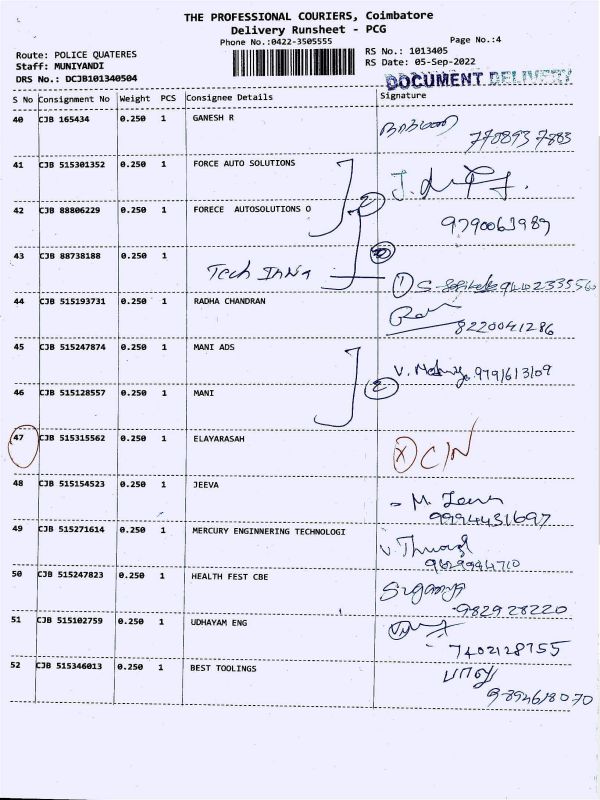 THE PROFESSIONAL COURIERS, Coimbatore
Delivery Runsheet - PCG
Phone No.:0422-3505555
Page No.:4
Route: POLICE QUATERES
RS No.: 1013405
Staff: MUNIYANDI
RS Date: 05-Sep-2022
DRS No.: DCJB101340504
DOCUMENT DELIVERY
S No Consignment No Weight PCS Consignee Details Signature
40 CJB 165434 0.250 1 GANESH R
770893 7883
41 CJB 515301352 0.250 1 FORCE AUTO SOLUTIONS
42 CJB 88806229 0.250 1 FORECE AUTOSOLUTIONS O
2
9790063989
43 CJB 88738188 0.250 1
Tech
1
44 CJB 515193731 0.250 1 RADHA CHANDRAN
8220041286
45 CJB 515247874 0.250 1 MANI ADS
9791613109
46 CJB 515128557 0.250 1 MANI
2
47 CJB 515315562 0.250 1 ELAYARASAH
X C/N
48 CJB 515154523 0.250 1 JEEVA
9994431697
49 CJB 515271614 0.250 1 MERCURY ENGINNERING TECHNOLOGI
9629994710
50 CJB 515247823 0.250 1 HEALTH FEST CBE
982928220
51 CJB 515102759 0.250 1 UDHAYAM ENG
7402128755
52 CJB 515346013 0.250 1 BEST TOOLINGS
9894618070